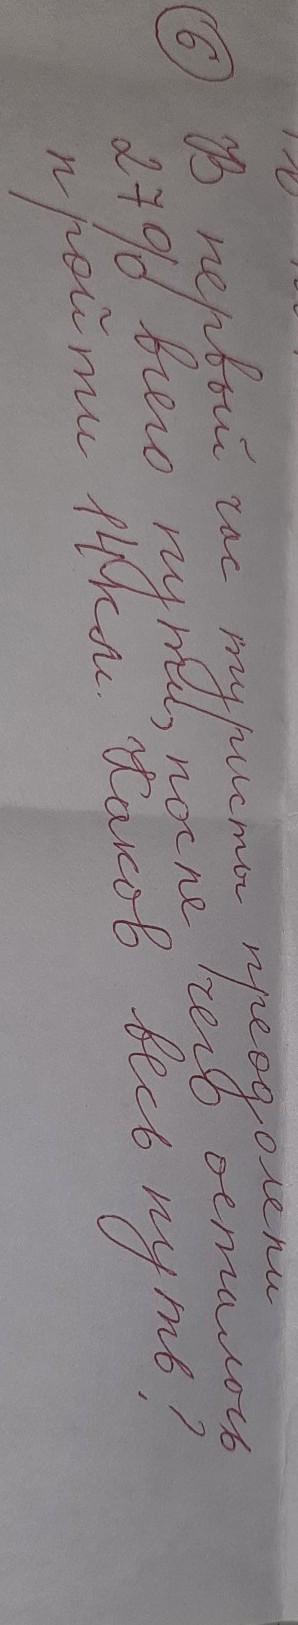 6 В первый час туристы преодолели
27% всего пути, после чего осталось
пройти 14км. Каков весь путь?